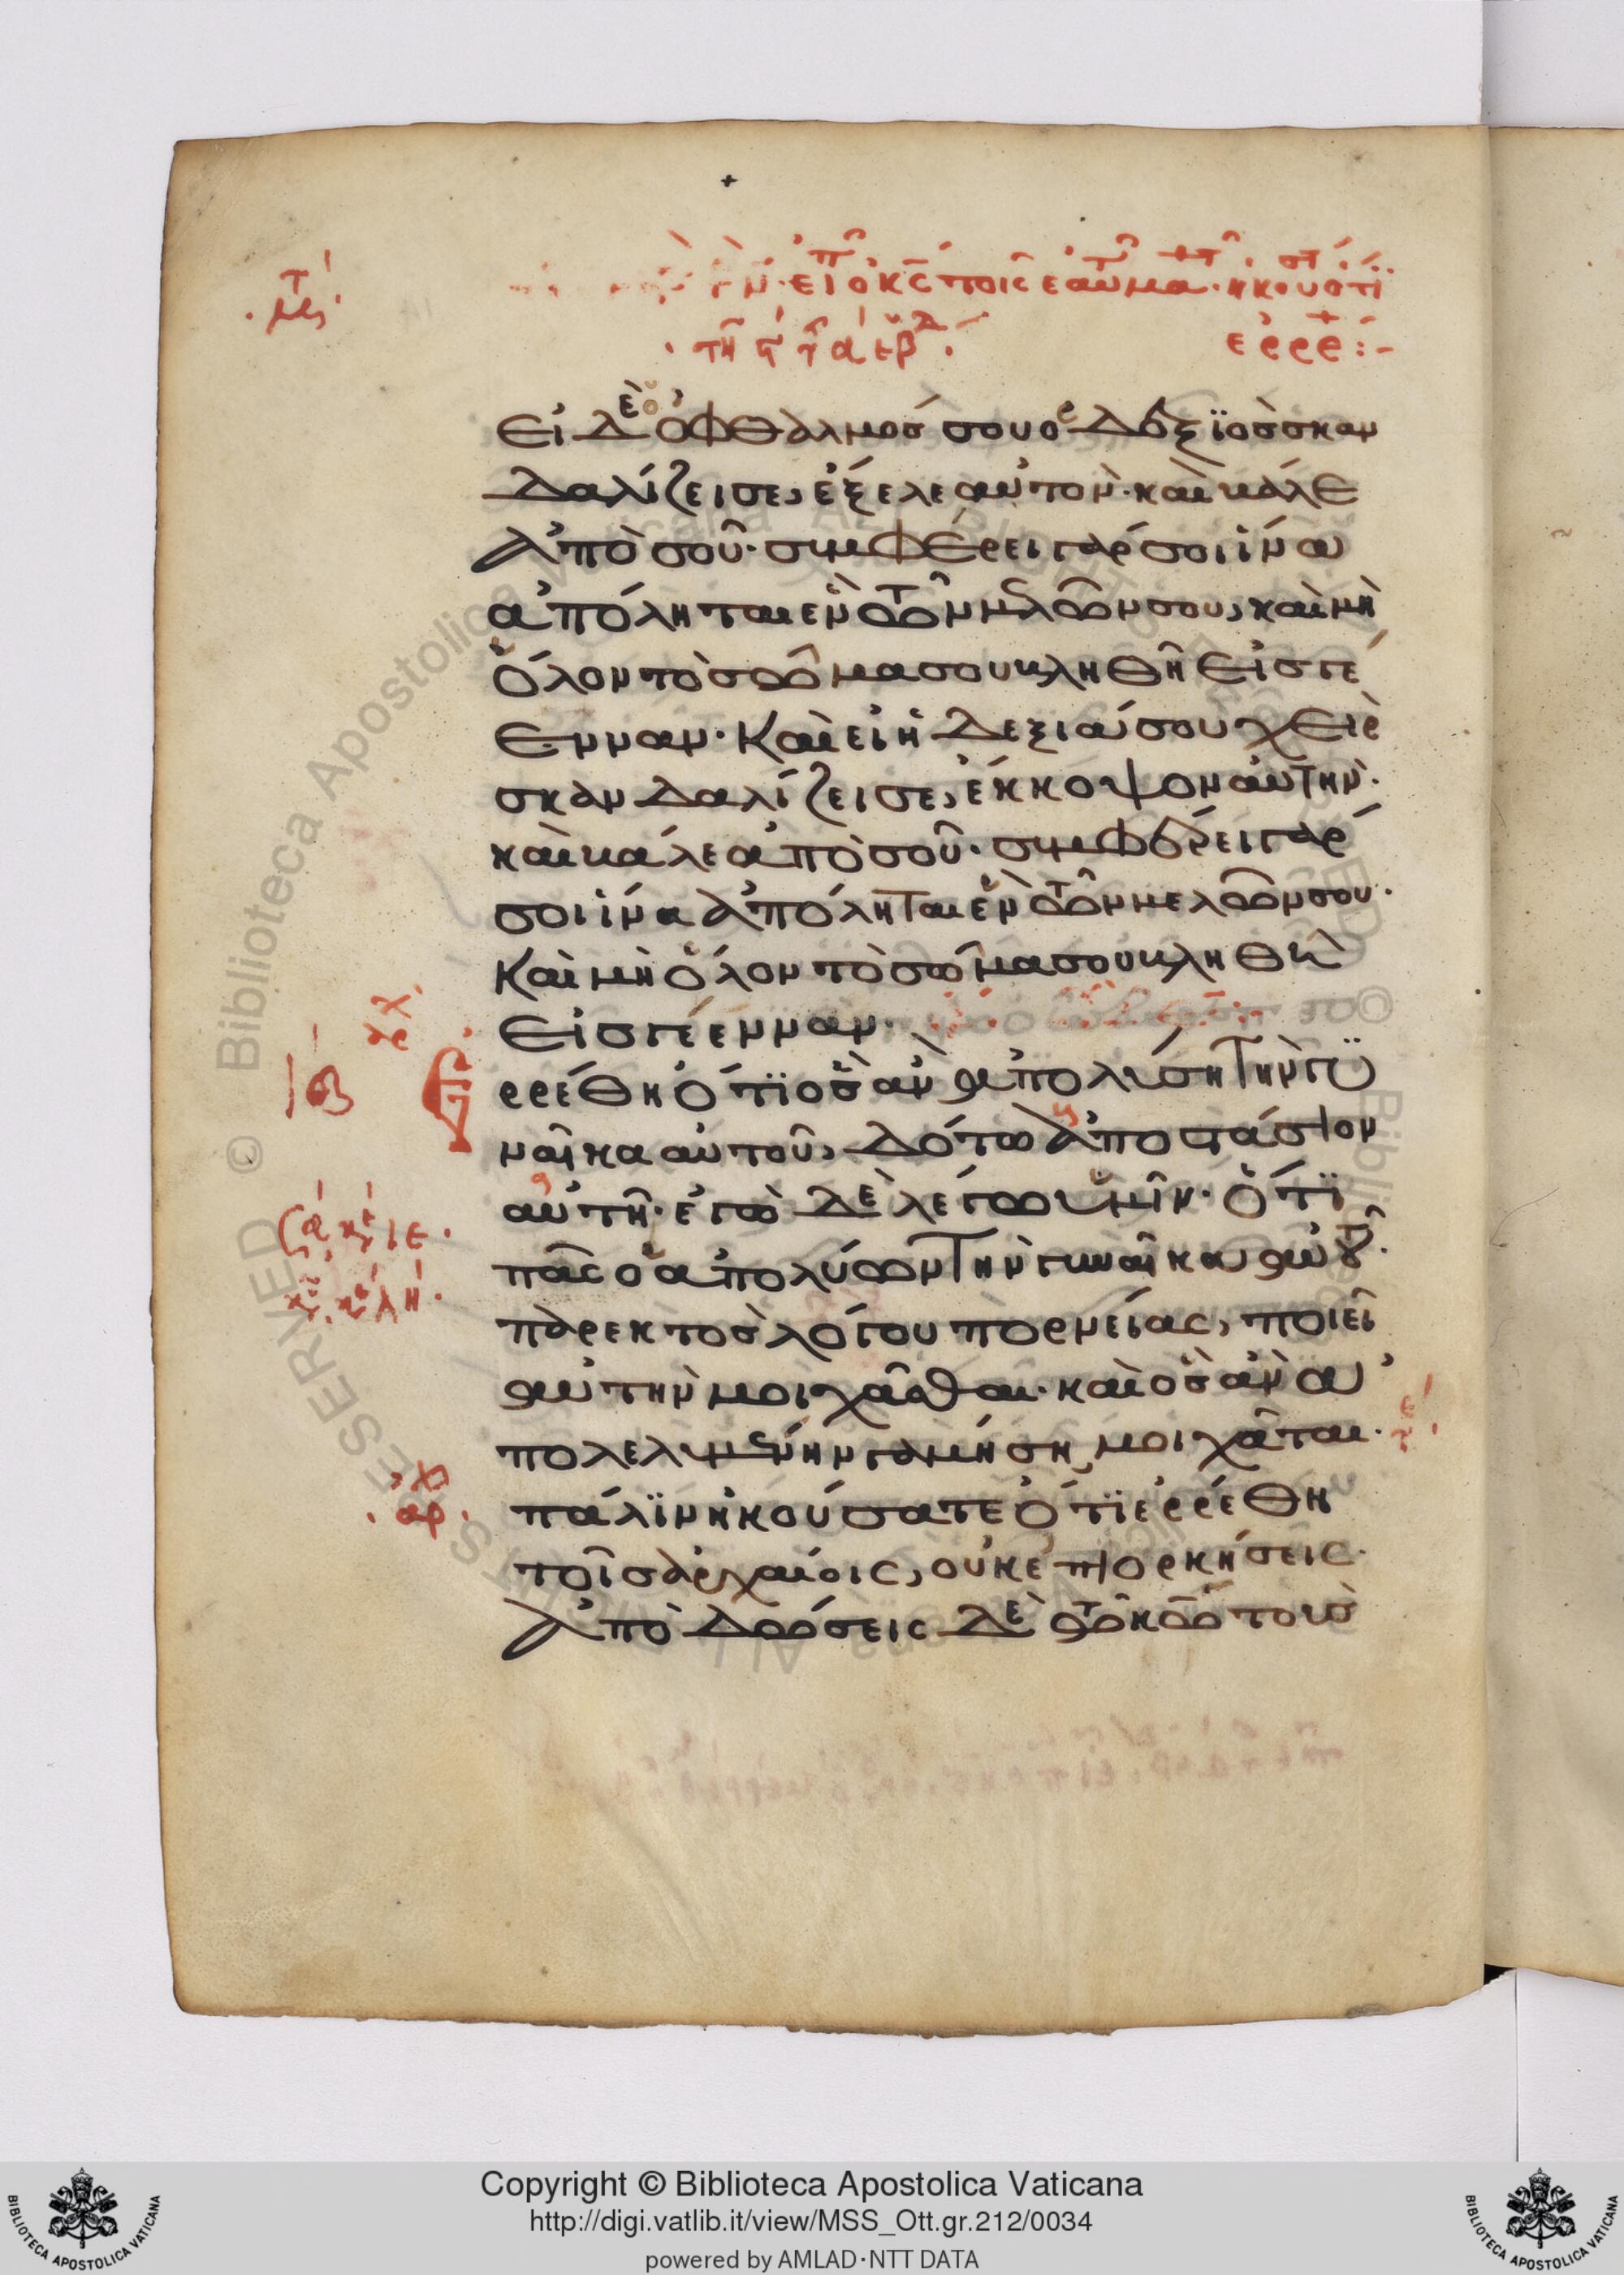 εἰ δὲ ὁ ὀφθαλμός σου ὁ δεξϊὸς σκαν
δαλίζει σε, ἔξελε αὐτὸν· καὶ βάλε
ἀπὸ σοῦ· συμφέρει γάρ σοι ἵνα
ἀπόληται ἓν τῶν μελῶν σου, καὶ μὴ
ὅλον τὸ σῶμα σου βληθῆ εἰς γέ
ενναν· Καὶ εἰ ἡ δεξιά σου χεὶρ
σκανδαλίζει σε, ἔκκοψον αὐτὴν·
καὶ βάλε ἀπὸ σοῦ· συμφέρει γάρ
σοι ἵνα ἀπόληται ἓν τῶν μελῶν σου·
Καὶ μὴ ὅλον τὸ σῶμα σου βληθῆ
εἰς γέενναν·
ρρέθη ὅτϊ ὃς ἂν ἀπολύση τὴν γϋ
ναῖκα αὐτοῦ, δότω ἀποστάσιον
αὐτῆ· ἐγὼ δὲ λέγω ὑμῖν· ὅτϊ
πᾶς ὁ ἀπολύων τὴν γυναῖκα αὐτοῦ·
παρεκτὸς λόγου πορνείας, ποιεῖ
αὐτὴν μοιχᾶσθαι· καὶ ὃς ἂν ἀ
πολελυμένην γαμήση, μοιχᾶται·
πάλϊν ἠκούσατε ὅτϊ ἐρρέθη
τοῖς ἀρχαίοις, οὐκ ἐπιορκήσεις·
ἀπὸδώσεις δὲ τῶ κῶ τοὺς
Copyright © Biblioteca Apostolica Vaticana
http://digi.vatlib.it/view/MSS_Ott.gr.212/0034
powered by AMLAD·NTT DATA
BIBLIOTECA APOSTOLICA VATICANA
BIBLIOTECA APOSTOLICA VATICANA